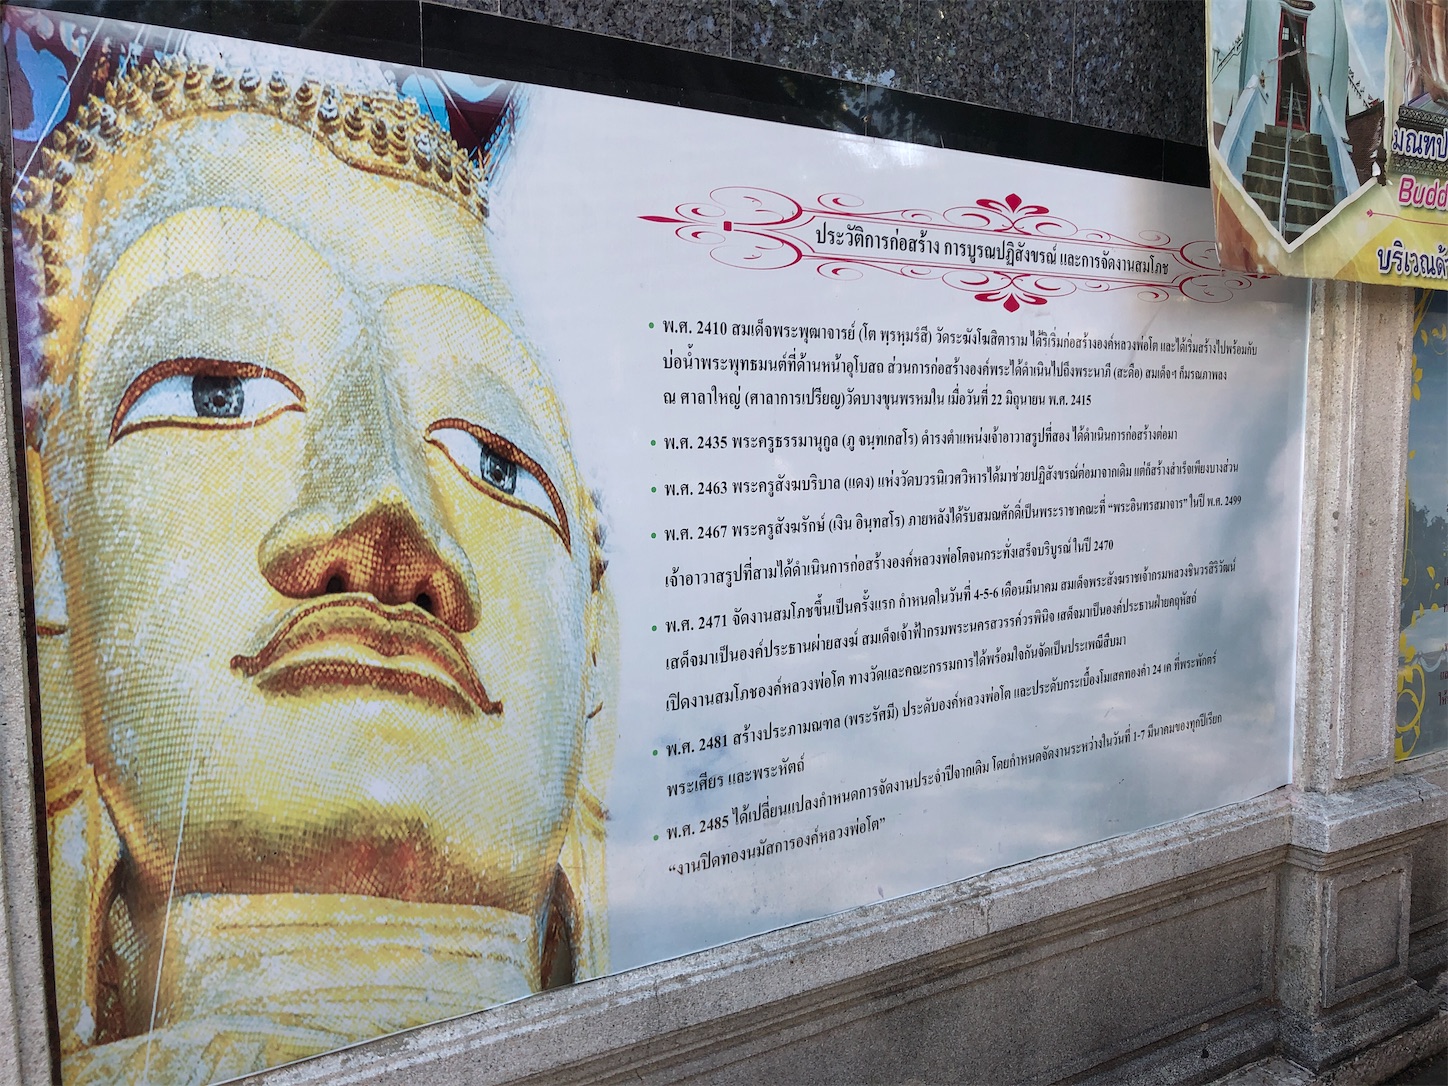 ประวัติการก่อสร้าง การบูรณปฏิสังขรณ์ และการจัดงานสมโภช
• พ.ศ. 2410 สมเด็จพระพุฒาจารย์ (โต พฺรหฺมรํสี) วัดระฆังโฆสิตาราม ได้ริเริ่มก่อสร้างองค์หลวงพ่อโต และได้เริ่มสร้างไปพร้อมกับ
บ่อน้ำพระพุทธมนต์ที่ด้านหน้าอุโบสถ ส่วนการก่อสร้างองค์พระได้ดำเนินไปถึงพระนาภี (สะดือ) สมเด็จฯ ก็มรณภาพลง
ณ ศาลาใหญ่ (ศาลาการเปรียญ)วัดบางขุนพรหมใน เมื่อวันที่ 22 มิถุนายน พ.ศ. 2415
• พ.ศ. 2435 พระครูธรรมานุกูล (ภู จนฺทเกสโร) ดำรงตำแหน่งเจ้าอาวาสรูปที่สอง ได้ดำเนินการก่อสร้างต่อมา
• พ.ศ. 2463 พระครูสังฆบริบาล (แดง) แห่งวัดบวรนิเวศวิหารได้มาช่วยปฏิสังขรณ์ต่อมาจากเดิม แต่ก็สร้างสำเร็จเพียงบางส่วน
• พ.ศ. 2467 พระครูสังฆรักษ์ (เงิน อินฺทสโร) ภายหลังได้รับสมณศักดิ์เป็นพระราชาคณะที่ “พระอินทรสมาจาร” ในปี พ.ศ. 2499
เจ้าอาวาสรูปที่สามได้ดำเนินการก่อสร้างองค์หลวงพ่อโตจนกระทั่งเสร็จบริบูรณ์ ในปี 2470
• พ.ศ. 2471 จัดงานสมโภชขึ้นเป็นครั้งแรก กำหนดในวันที่ 4-5-6 เดือนมีนาคม สมเด็จพระสังฆราชเจ้ากรมหลวงชินวรสิริวัฒน์
เสด็จมาเป็นองค์ประธานฝ่ายสงฆ์ สมเด็จเจ้าฟ้ากรมพระนครสวรรค์วรพินิจ เสด็จมาเป็นองค์ประธานฝ่ายคฤหัสถ์
เปิดงานสมโภชองค์หลวงพ่อโต ทางวัดและคณะกรรมการได้พร้อมใจกันจัดเป็นประเพณีสืบมา
• พ.ศ. 2481 สร้างประภามณฑล (พระรัศมี) ประดับองค์หลวงพ่อโต และประดับกระเบื้องโมเสคทองคำ 24 เค ที่พระพักตร์
พระเศียร และพระหัตถ์
• พ.ศ. 2485 ได้เปลี่ยนแปลงกำหนดการจัดงานประจำปีจากเดิม โดยกำหนดจัดงานระหว่างในวันที่ 1-7 มีนาคมของทุกปีเรียก
“งานปิดทองนมัสการองค์หลวงพ่อโต”
มณฑป
Budd
บริเวณด้